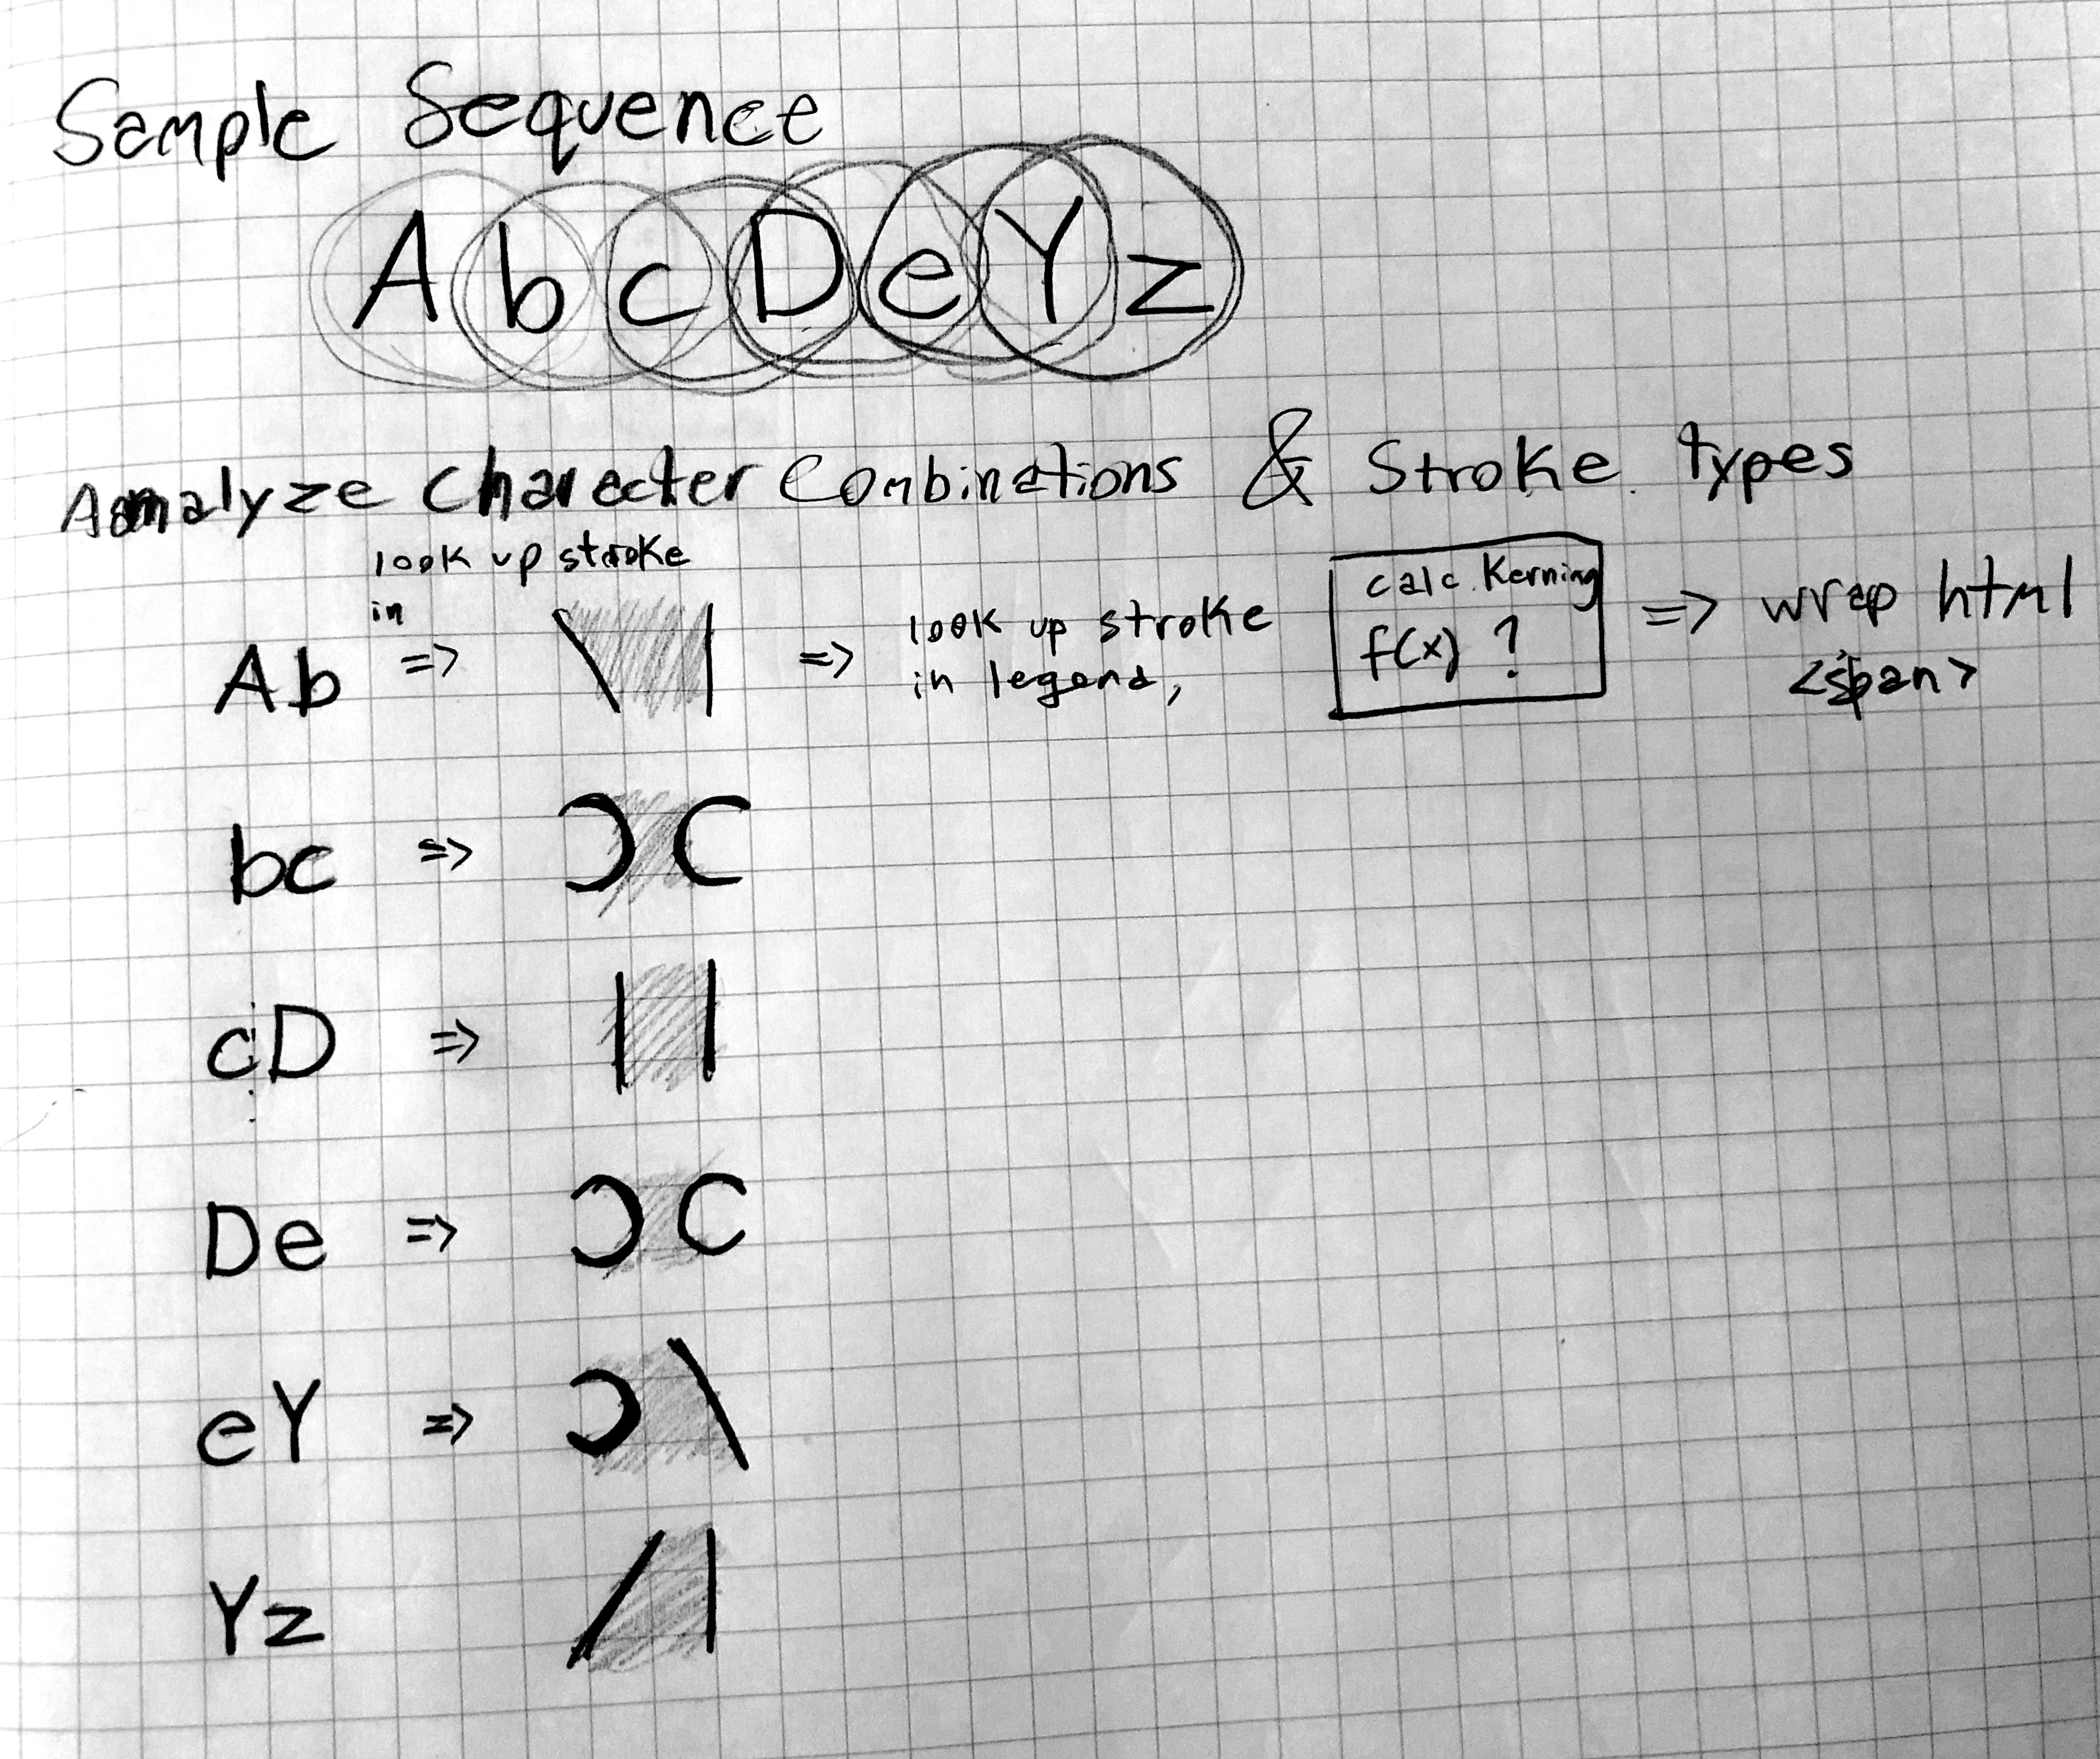 Sample Sequence
AbcDeYz
Analyze Character Combinations & Stroke types
look up stroke
in
Ab => \ | => look up stroke
in legend,
calc. Kerning
f(x) ?
=> wrap html
<span>
bc => Ɔ C
cD => | |
De => Ɔ C
eY => Ɔ \
Yz / |